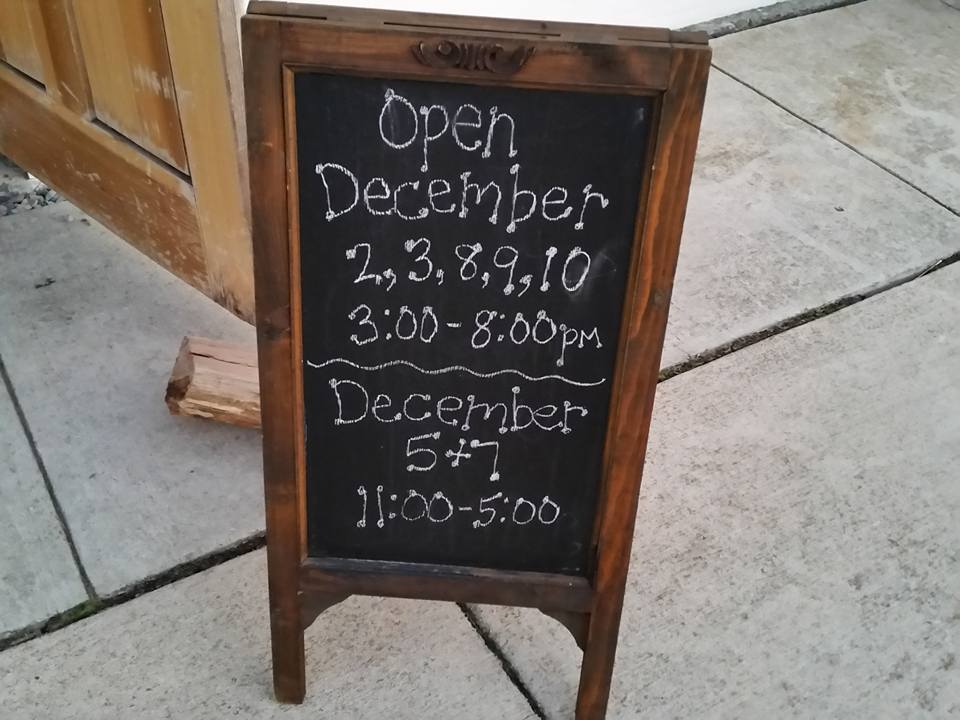 Open
December
2,3,8,9,10
3:00-8:00pm
December
5+7
11:00-5:00